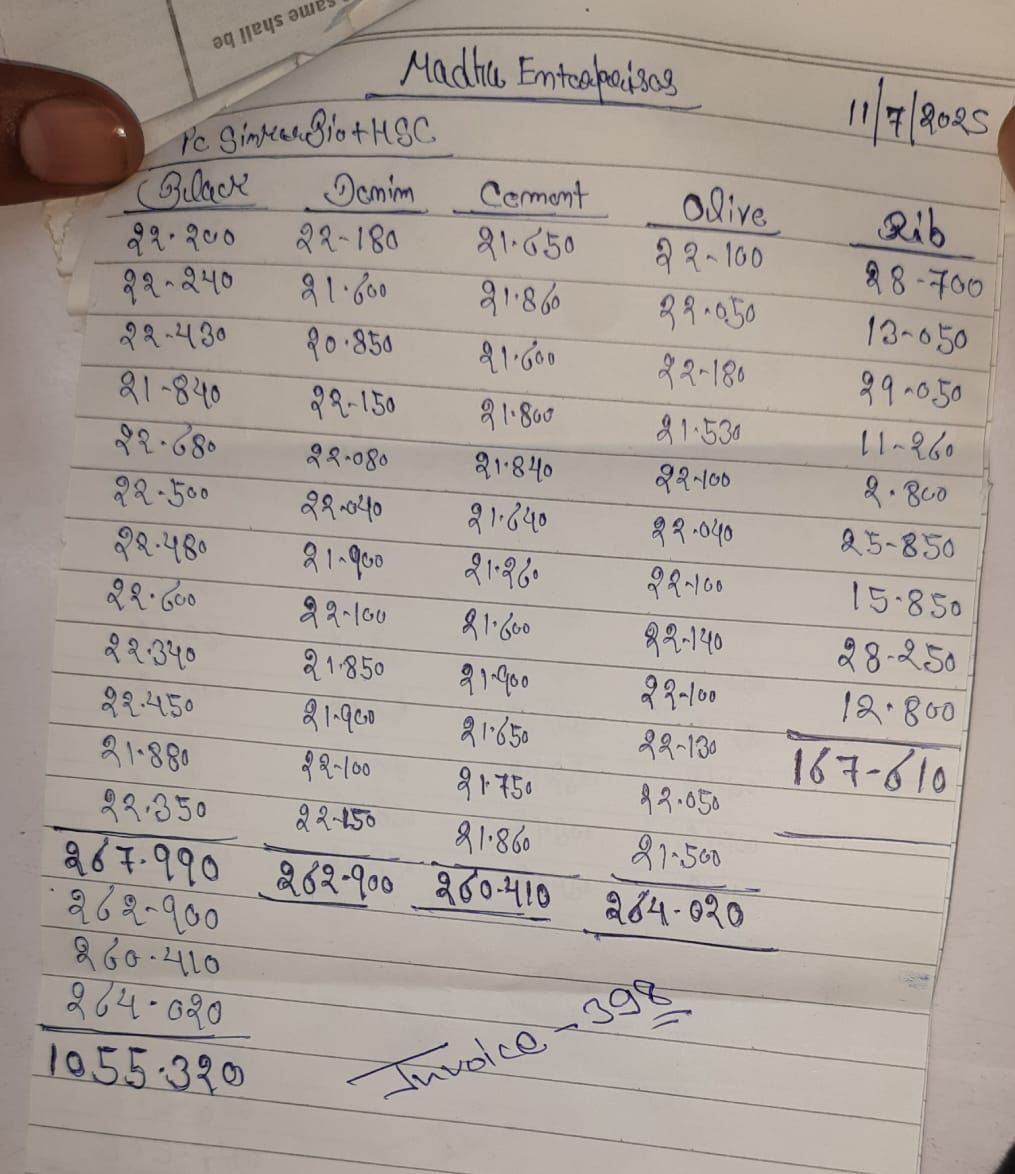 same shall be
Madhu Enterpaisas
11/7/2025
Pc Sinker Bio + HSC
Black Danim Cement Olive Rib
22.200 22-180 21.650 22-100 28-700
22-240 21.600 21.860 22.050 13-050
22-430 20.850 21.600 22-180 29-050
21-840 22-150 21.800 21.530 11-260
22.680 22.080 21.840 22-100 2.800
22.500 22.040 21.640 22.040 25-850
22.480 21-900 21.260 22-100 15.850
22.600 22-100 21.600 22-140 28-250
22.340 21.850 21-900 22-100 12.800
22.450 21-900 21.650 22-130 167-610
21.880 22-100 21.750 22.050
22.350 22-150 21.860 21-500
267.990 262-900 260-410 264-020
262-900
260.410
264-020
1055.320
Invoice - 398